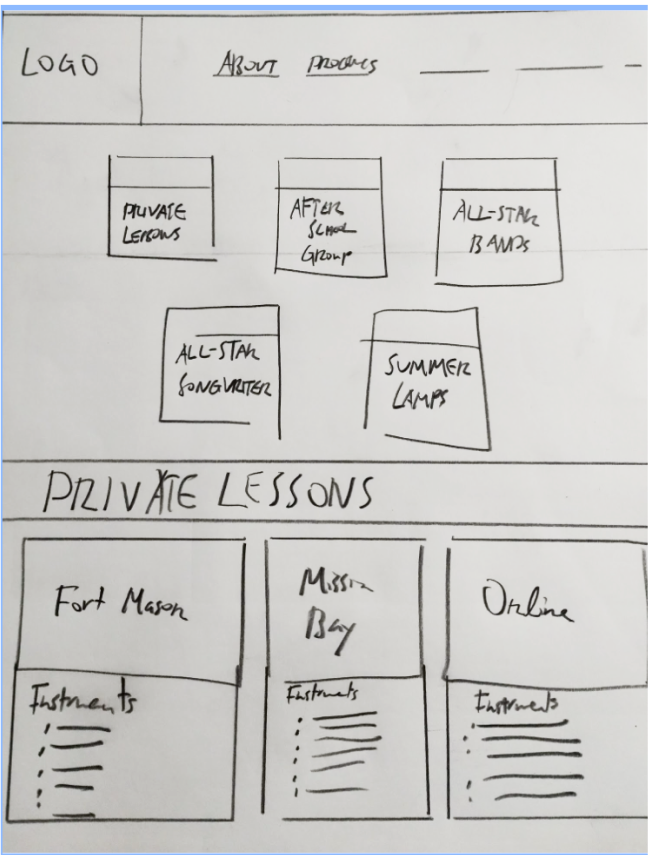 LOGO
ABOUT
PRIVATE
LESSONS
AFTER
SCHOOL
GROUP
ALL-STAR
BANDS
ALL-STAR
SONGWRITER
SUMMER
PRIVATE LESSONS
Fort Mason
Bay
Online
Instruments
Instruments